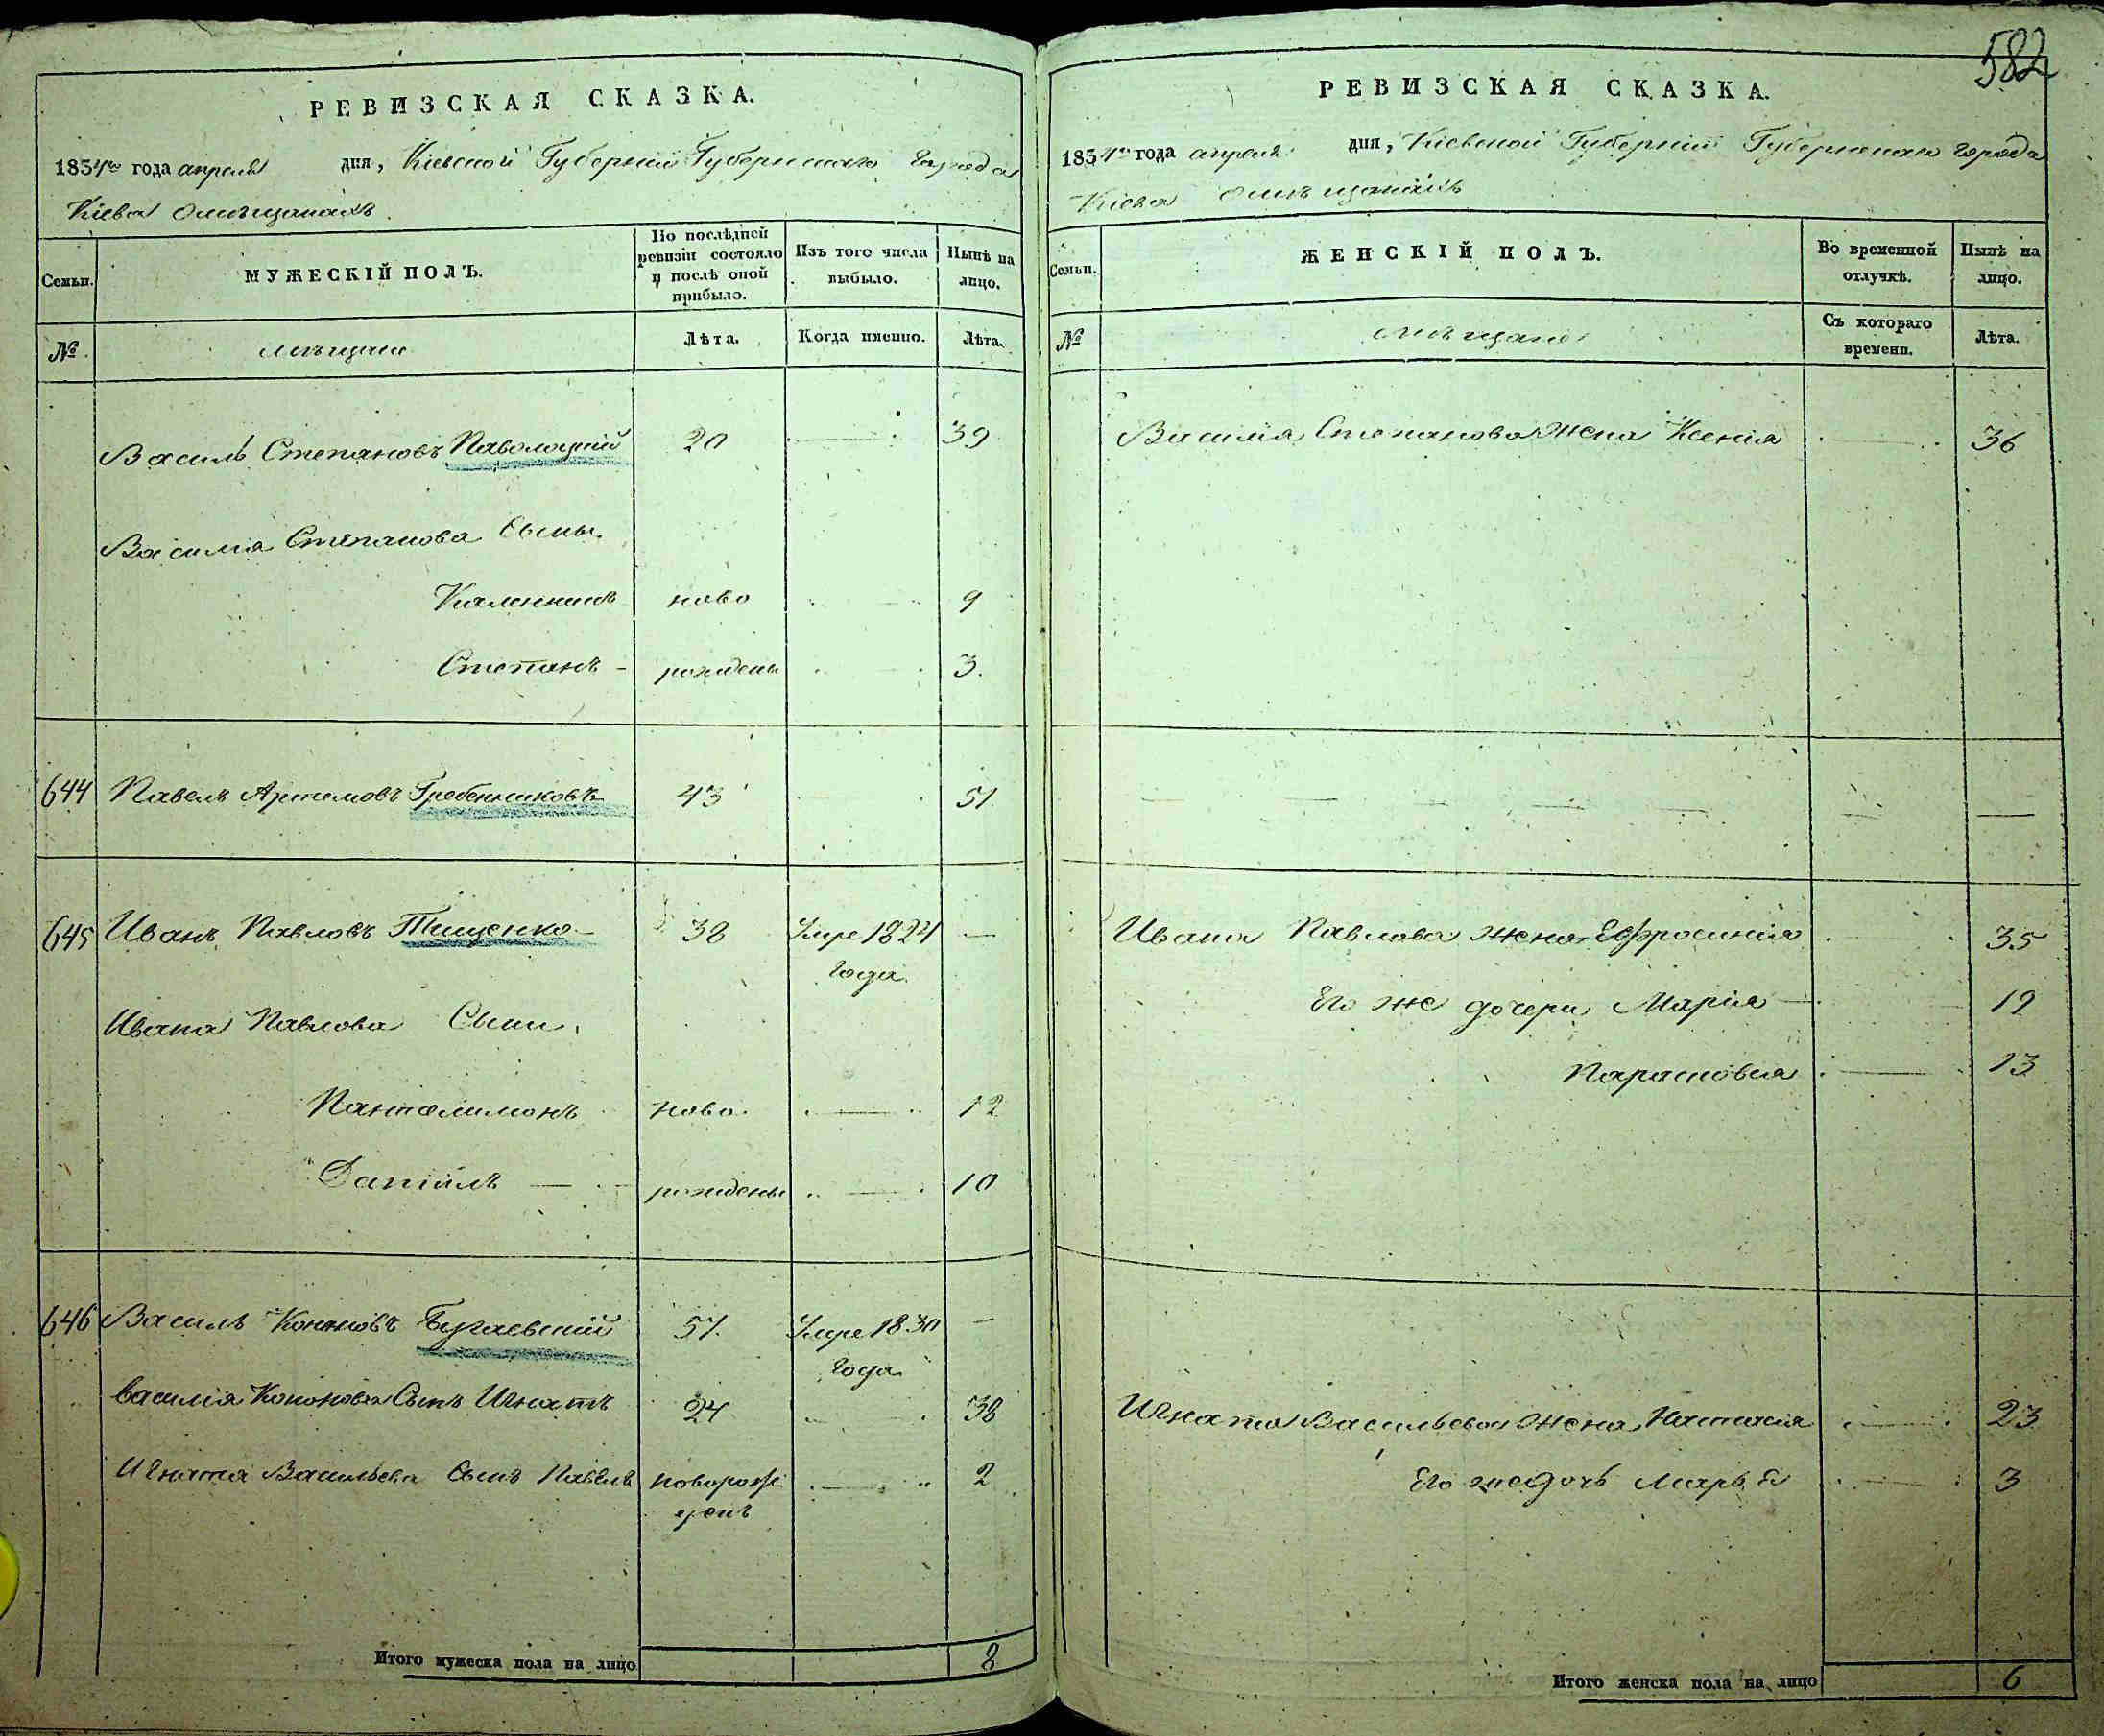 582
РЕВИЗСКАЯ СКАЗКА.
1834го года апреля дня, Кіевской Губерніи Губернскаго города
Кіева о мѣщанахъ
Семьи.
МУЖЕСКІЙ ПОЛЪ.
По послѣдней ревизіи состояло и послѣ оной прибыло.
Изъ того числа выбыло.
Нынѣ на лицо.
№
мѣщане
Лѣта.
Когда именно.
Лѣта.
Василь Степановъ Паволоцкий 20 39
Василия Степанова Сыны
ново 9
Степанъ рождены 3.
644 Павелъ Артемовъ Гребенниковъ 43 51
645 Иванъ Павловъ Тищенко 38 Умре 1824 —
года
Ивана Павлова Сыни
Пантелимонъ ново. 12
Даніилъ рождены 10
646 Василь Кононовъ Бугаевский 57. Умре 1830 —
года
Василия Кононова Сынъ Игнатъ 24 38
Игната Васильева Сынъ Павелъ новорож 2
денъ
Итого мужеска пола на лицо 8
РЕВИЗСКАЯ СКАЗКА.
1834го года апреля дня, Кіевской Губерніи Губернскаго города
Кіева о мѣщанахъ
Семьи.
ЖЕНСКІЙ ПОЛЪ.
Во временной отлучкѣ.
Нынѣ на лицо.
№
мѣщане
Съ котораго времени.
Лѣта.
Василия Степанова жена Ксения 36
Ивана Павлова жена Евфросиния 35
Его же дочери Марія 19
Парасковия 13
Игната Васильева жена Настасия 23
Его же дочь Марья 3
Итого женска пола на лицо 6